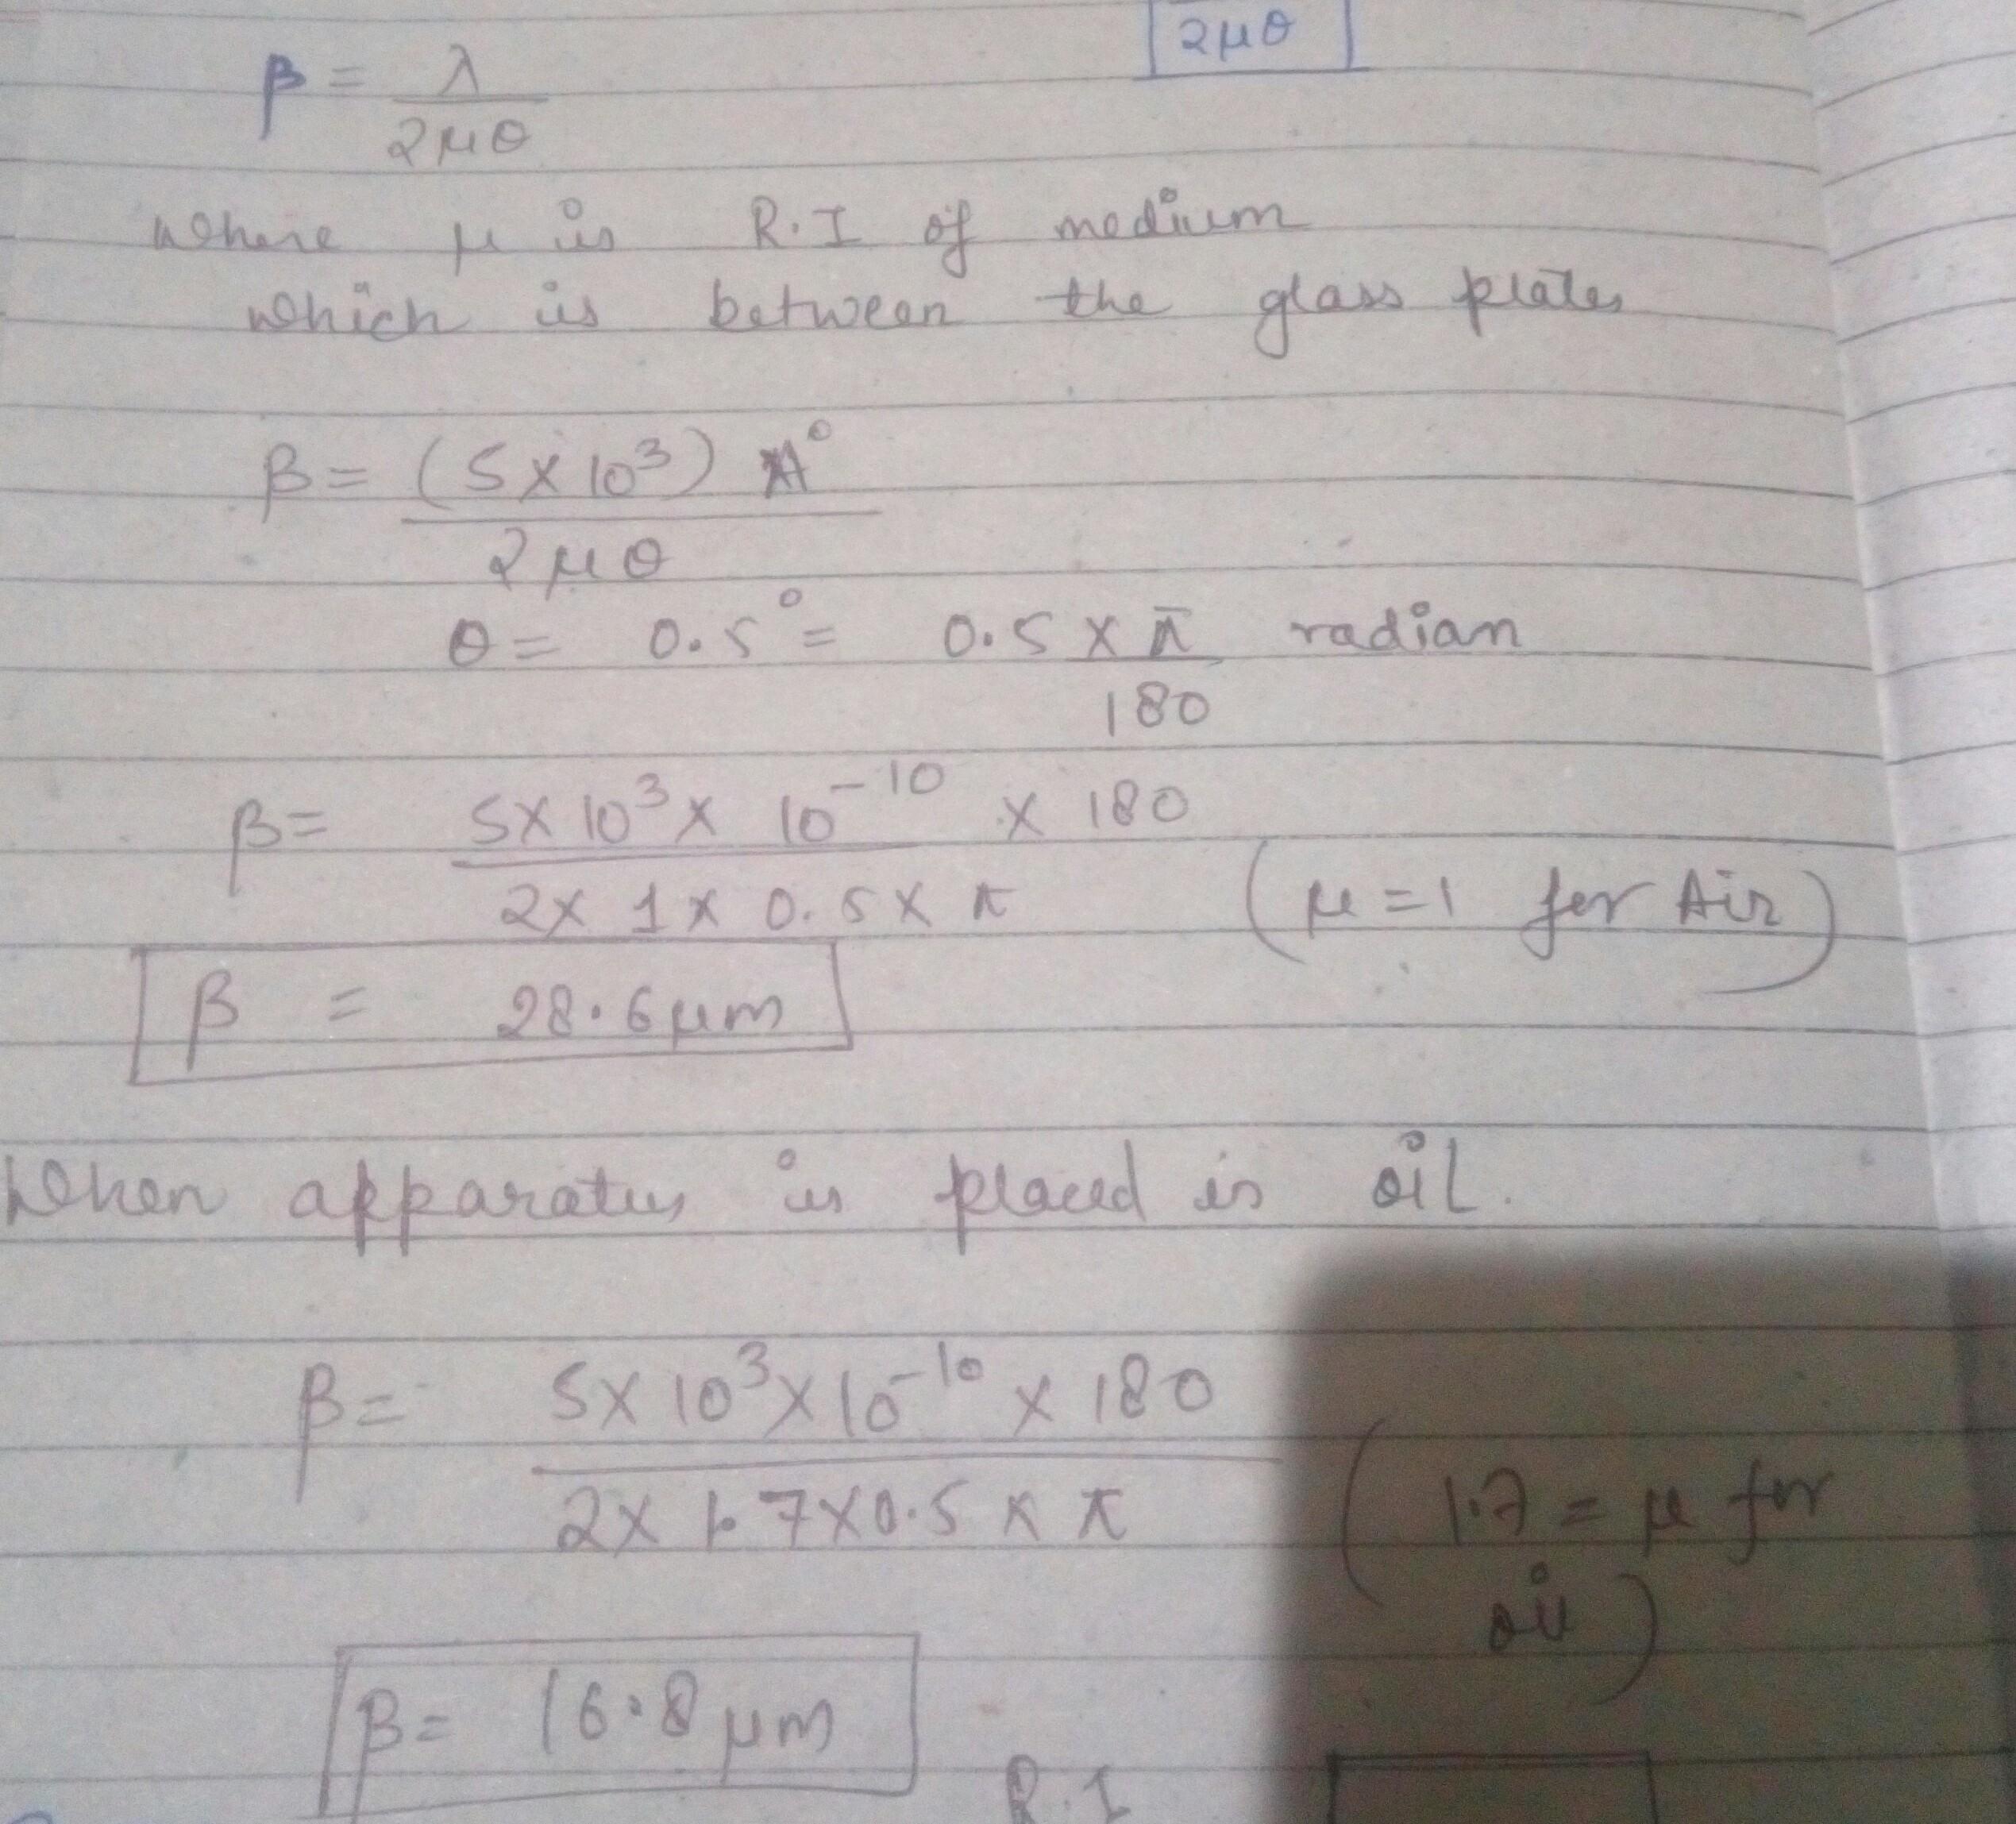 2μθ
β = λ
2μθ
where μ is R.I of medium
which is between the glass plates
β = (5 × 10³) A°
2μθ
θ = 0.5° = 0.5 × π radian
180
β = 5 × 10³ × 10⁻¹⁰ × 180
2 × 1 × 0.5 × π (μ = 1 for Air)
β = 28.6 μm
When apparatus is placed in oil.
β = 5 × 10³ × 10⁻¹⁰ × 180
2 × 1.7 × 0.5 × π (1.7 = μ for
oil)
β = 16.8 μm
R.I